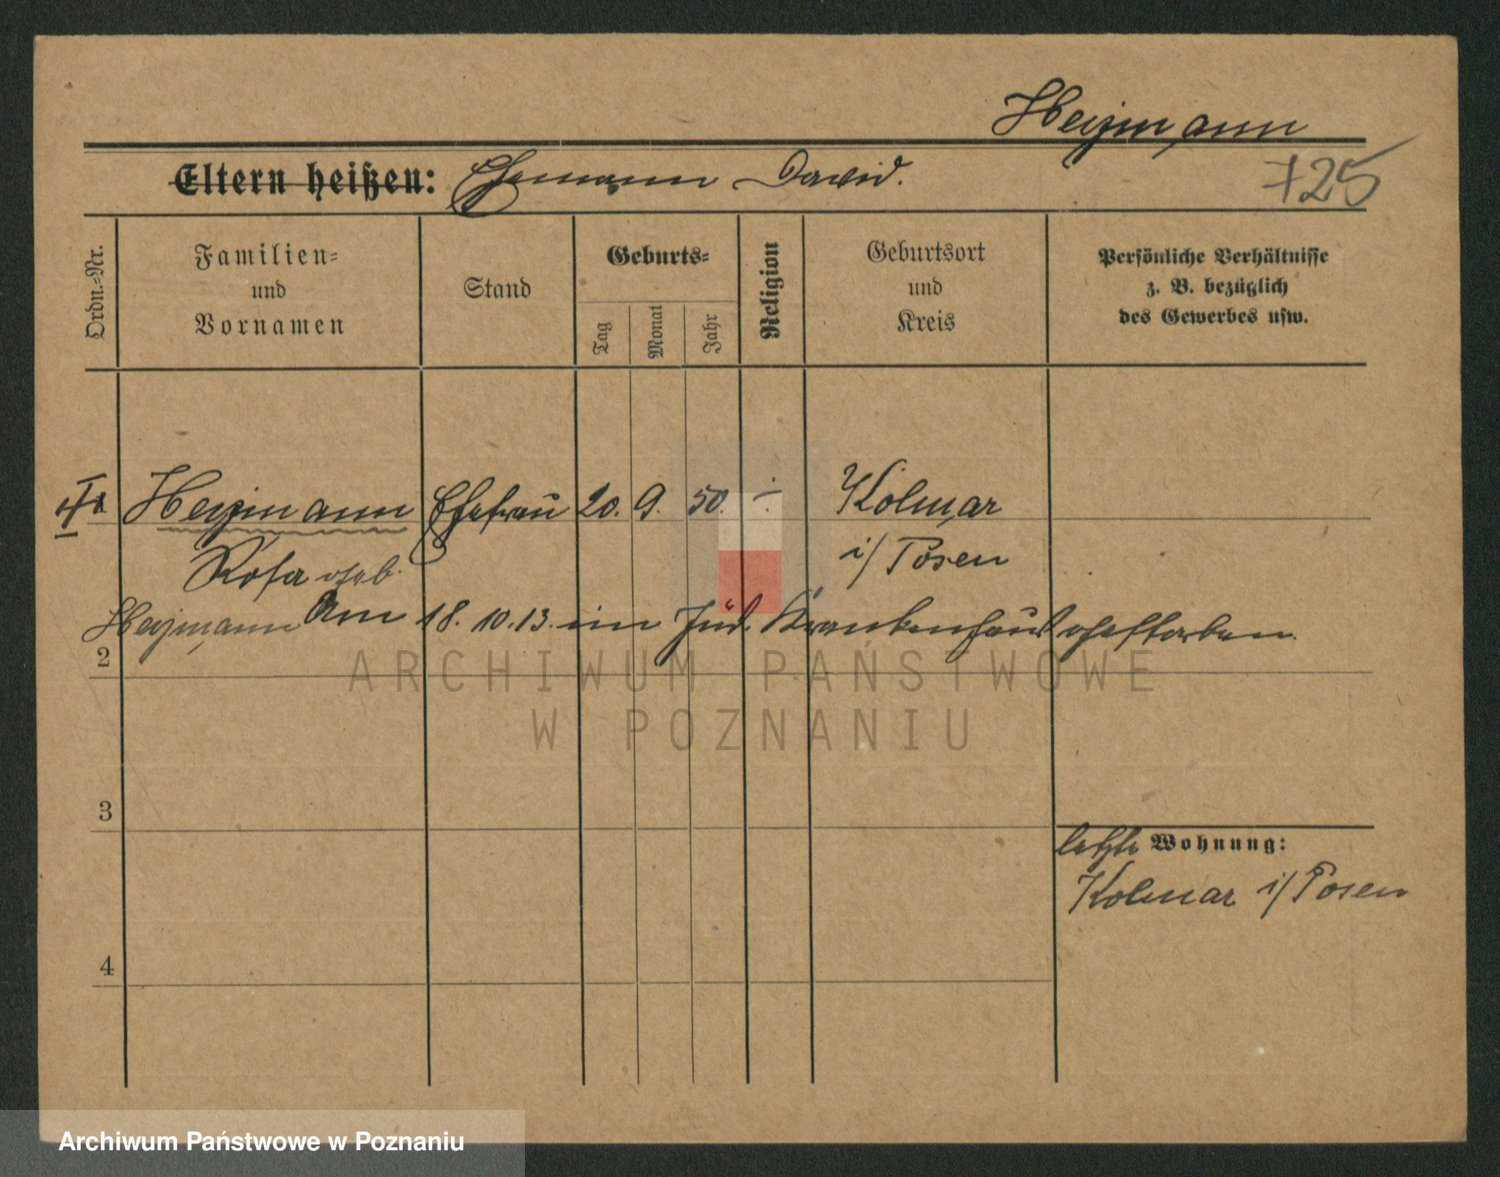 Heymann
Eltern heißen: Ehemann David.
725
Ordn.-Nr.
Familien-
und
Vornamen
Stand
Geburts-
Tag
Monat
Jahr
Religion
Geburtsort
und
Kreis
Persönliche Verhältnisse
z. B. bezüglich
des Gewerbes usw.
Heymann Ehefrau 20. 9. 50. Kolmar
Rosa geb. i/Posen
Heymann Am 18. 10. 13. im Jüd. Krankenhaus gestorben.
2
ARCHIWUM PAŃSTWOWE
W POZNANIU
3
letzte Wohnung:
Kolmar i/Posen
4
Archiwum Państwowe w Poznaniu